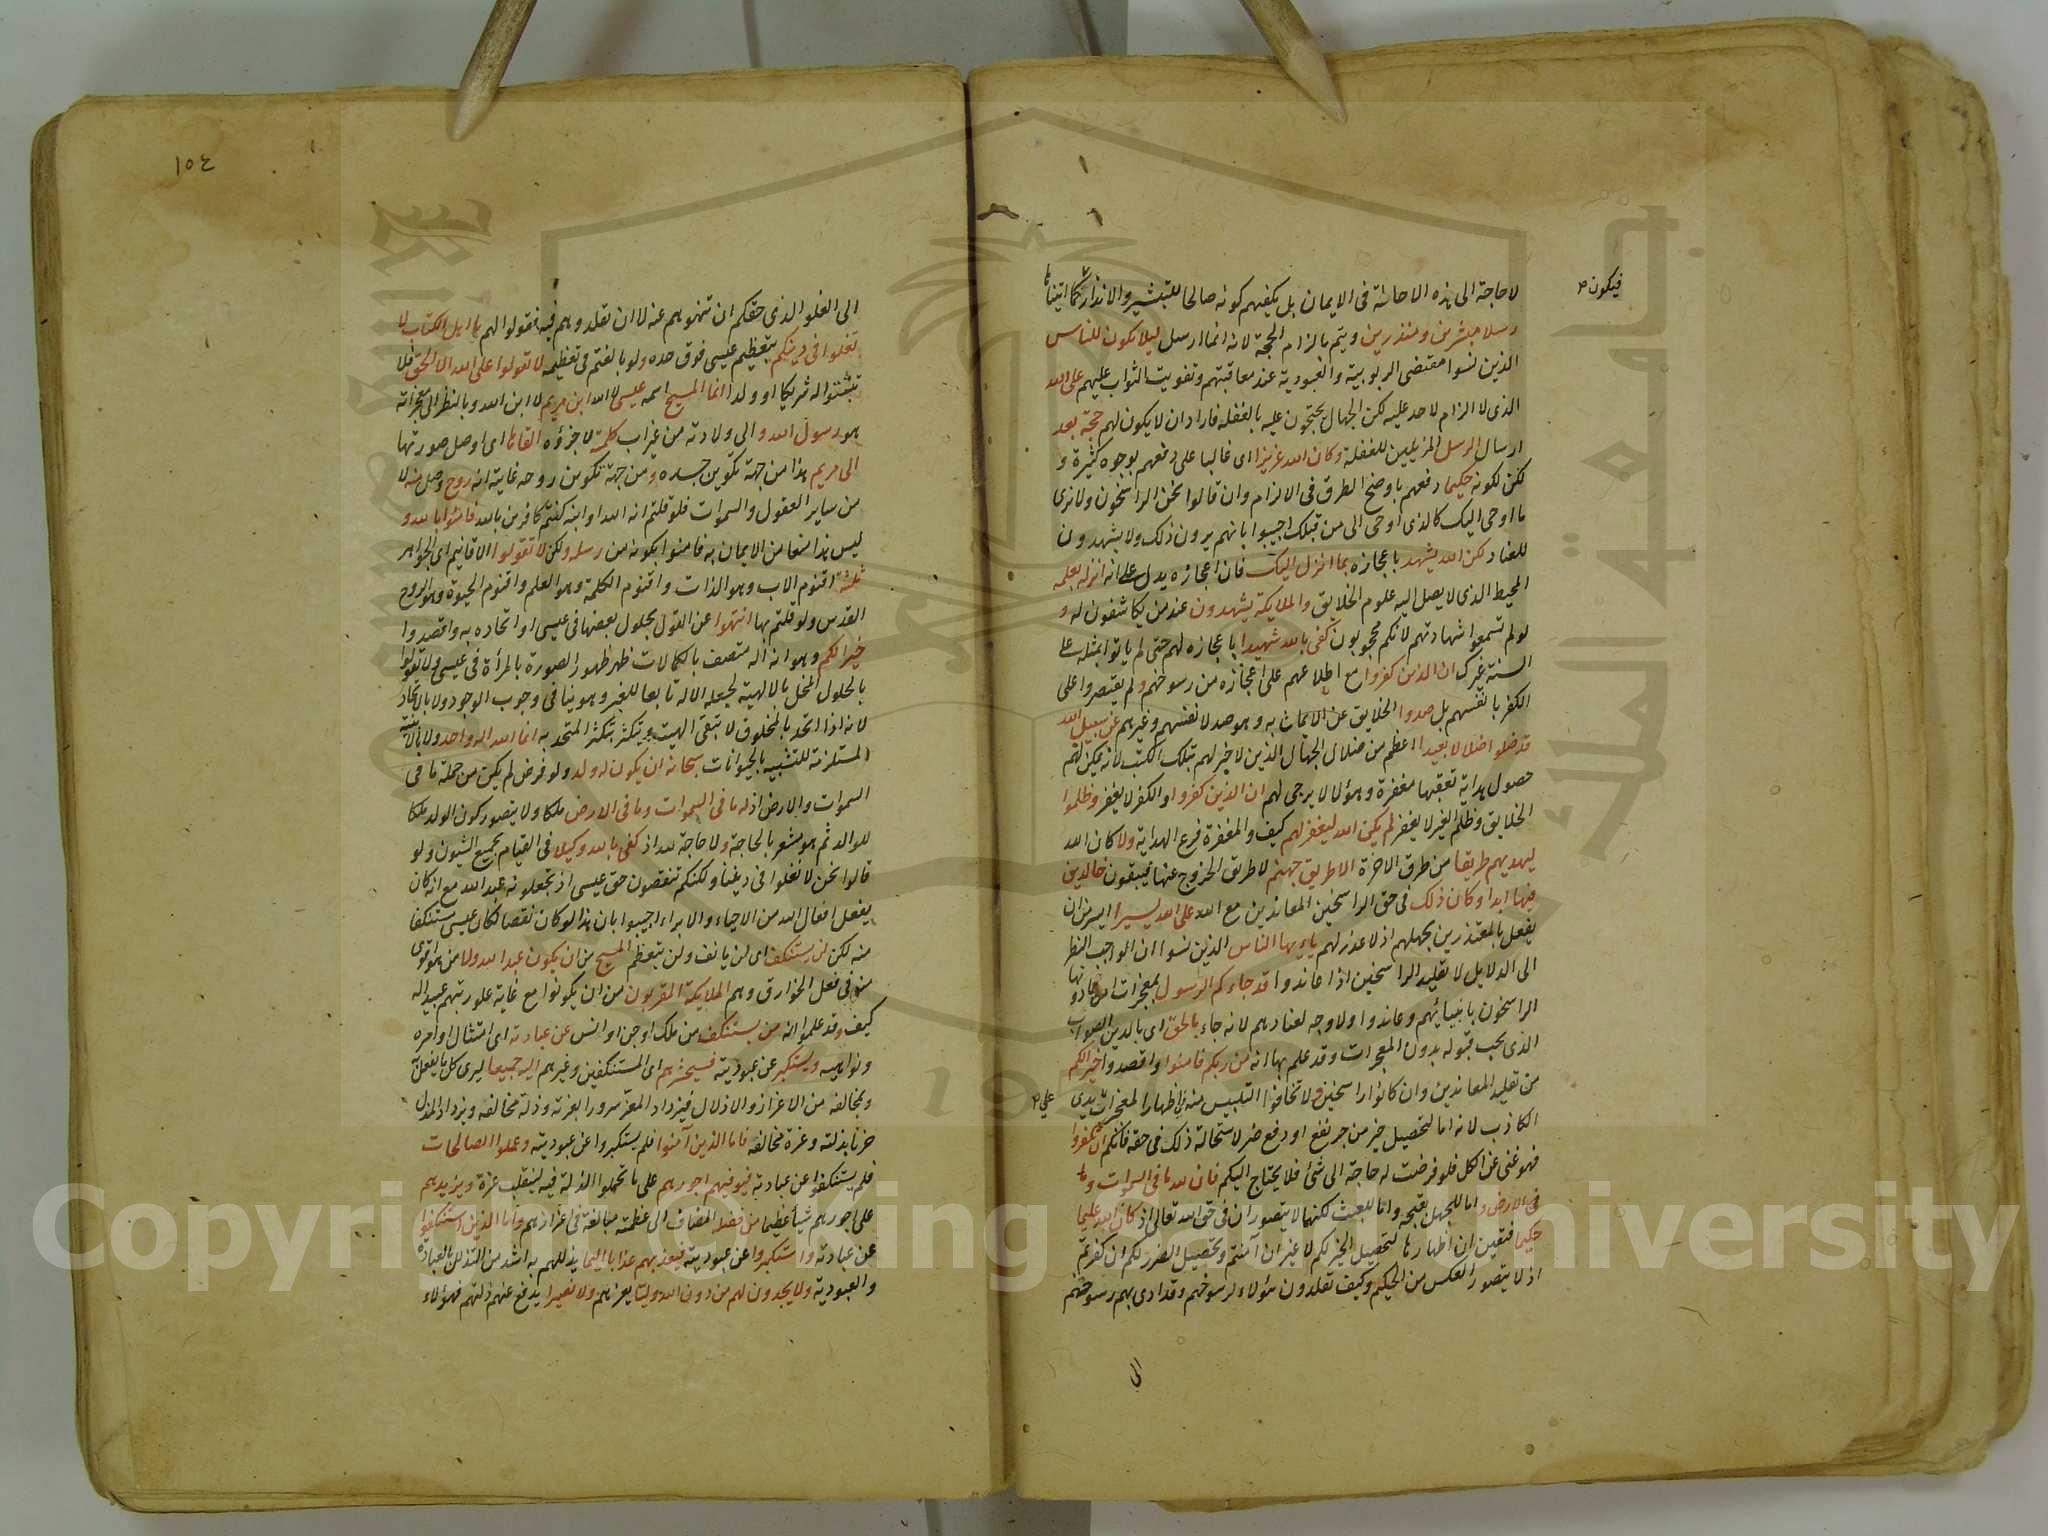 فيكون
لا حاجة الى هذه الاحاثة فى الايمان بل يكفيهم كونه صالحا للتبشير والانذار كما اتينا
رسلا مبشرين ومنذرين ويتم بالزام الحجة لانه انما ارسل ليلا يكون للناس
الذين نسوا مقتضى الربوبية والعبودية عند معاقبتهم وتفويت الثواب عليهم على الله
الذى لا الزام لاحد عليه لكن الجهال يحتجون عليه بالغفلة فاراد ان لا يكون لهم حجة بعد
ارسال الرسل المزيلين للغفلة وكان الله عزيزا اى غالبا على دفعهم بوجوه كثيرة و
لكن لكونه حكيما دفعهم باوضح الطرق فى الالزام وان قالوا نحن الراسخون ولا نرى
ما اوحى اليك كالذى اوحى الى من قبلك اجيبوا بانهم يرون ذلك ولا يشهدون
للعناد لكن الله يشهد باعجازه بما انزل اليك فان اعجازه يدل على انه انزله بعلمه
المحيط الذى لا يصل اليه علوم الخلايق والملايكة يشهدون عند من يكاشفون له و
لو لم تسمعوا شهادتهم لانكم محجوبون كفى بالله شهيدا باعجازه لهم حتى لم ياتوا بمثله على
السنة غيرك ان الذين كفروا مع اطلاعهم على اعجازه من رسوخهم ولم يقتصروا على
الكفر بانفسهم بل صدوا الخلايق عن الايمان به وهو صد لانفسهم وغيرهم عن سبيل الله
قد ضلوا ضلالا بعيدا اعظم من ضلال الجهال الذين لا خبر لهم بتلك الكتب لانه يمكن لهم
حصول هداية تعقبها مغفرة وهؤلا لا يرجى لهم ان الذين كفروا والكفر لا يغفر وظلموا
الخلايق وظلم الغير لا يغفر لم يكن الله ليغفر لهم كيف والمغفرة فرع الهداية ولا كان الله
ليهديهم طريقا من طرق الاخرة الا طريق جهنم لا طريق الخروج عنها فيبقون خالدين
فيها ابدا وكان ذلك فى حق الراسخين المعاندين مع الله على الله يسيرا ايسر من ان
يفعل بالمعتذرين بجهلهم اذ لا عذر لهم يا ايها الناس الذين نسوا ان الواجب النظر
الى الدلايل لا تقليد الراسخين اذا عاندوا قد جاءكم الرسول بمعجزات
الراسخون بانبيائهم وعاندوا ولا وجه لعنادهم لانه جاء بالحق اى بالدين الصواب
الذى يجب قبوله بدون المعجزات وقد علم بها انه من ربكم فامنوا واقصدوا خيرا لكم
من تقليد المعاندين وان كانوا راسخين ولا تخافوا التلبيس منه فى اظهار المعجزات يدى
على
الكاذب لانه اما لتحصيل خير من جر نفع او دفع ضر لاستحالة ذلك فى حقه فانكم ان تكفروا
فهو غنى عن الكل فلو فرضت له حاجة الى شئ فلا يحتاج اليكم فان لله ما فى السموات وما
فى الارض و اما للجهل بقبحه واما للعبث لكنهما لا يتصوران فى حق الله تعالى اذ كان الله عليما
حكيما فتعين ان اظهارها لتحصيل الخير لكم لا غير ان آمنتم وتحصيل الضرر لكم ان كفرتم
اذ لا يتصور العكس من الحكيم وكيف تقلدون هؤلاء لرسوخهم وقد ادى بهم رسوخهم
الى
١٥٤
الى الغلو الذى حقكم ان تنهوهم عنه لا ان تقلدوهم فيه فقولوا لهم يا اهل الكتاب لا
تغلوا فى دينكم بتعظيم عيسى فوق حده ولو بالغتم فى تعظيمه لا تقولوا على الله الا الحق فلا
تثبتوا له شريكا او ولدا انما المسيح اسمه عيسى لا الله ابن مريم لا ابن الله وبالنظر الى معجزاته
هو رسول الله و الى ولادته من غير اب كلمته لا جزؤه القاها اى اوصل صورتها
الى مريم هذا من جهة تكوين جسده و من جهة تكوين روحه غايته انه روح وصل منه لا
من ساير العقول والسموات فلو قلتم انه الله او ابنه كنتم كافرين بالله فامنوا بالله و
ليس هذا منعا من الايمان به فامنوا بكونه من رسله ولكن لا تقولوا الاقانيم اى الجواهر
ثلثة اقنوم الاب وهو الذات واقنوم الكلمة وهو العلم واقنوم الحيوة وهو الروح
القدس ولو قلتم بها انتهوا عن القول بحلول بعضها فى عيسى او اتحاده به واقصدوا
خيرا لكم وهو انه اله متصف بالكمالات ظهر ظهور الصورة بالمرأة فى عيسى ولا تقولوا
بالحلول المخل بالالهية لجعله الاله تابعا للغير وهو ينافى وجوب الوجود ولا بالاتحاد
لانه اذا اتحد بالمخلوق لا تبقى الهيته ويتكثر بتكثر المتحد به انما الله اله واحد ولا بالابنية
المستلزمة للتشبيه بالحيوانات سبحانه ان يكون له ولد ولو فرض لم يكن من جملة ما فى
السموات والارض اذ له ما فى السموات وما فى الارض ملكا ولا يتصور كون الولد ملكا
للوالد ثم هو مشعر بالحاجة ولا حاجة لله اذ كفى بالله وكيلا فى القيام بجميع الشيون ولو
قالوا نحن لا نغلوا فى ديننا ولكنكم تنقصون حق عيسى اذ تجعلونه عبد الله مع انه كان
يفعل افعال الله من الاحياء والابراء اجيبوا بان هذا لو كان نقصا لكان عيسى مستنكفا
منه لكن لن يستنكف اى لن يانف ولن يتعظم المسيح من ان يكون عبدا لله ولا من هو اقوى
منه فى فعل الخوارق وهم الملايكة المقربون من ان يكونوا مع غاية علو رتبتهم عبيدا له
كيف وقد علموا انه من يستنكف من ملك او جن او انس عن عبادته اى امتثال اوامره
ونواهيه ويستكبر عن عبوديته فسيحشرهم اى المستنكفين وغيرهم اليه جميعا ليرى كل ما يفعل به
وبمخالفه من الاعزاز والاذلال فيزداد المعز سرورا لعزته وذلة مخالفه ويزداد المذل
حزنا بذلته وعزة مخالفه فاما الذين آمنوا فلم يستكبروا عن عبوديته وعملوا الصالحات
فلم يستنكفوا عن عبادته فيوفيهم اجورهم على ما تحملوا الذلة فيه لينقلب عزة ويزيدهم
على اجورهم شيأ عظيما من فضله المضاف الى عظمته مبالغة فى اعزازهم واما الذين استنكفوا
عن عبادته واستكبروا عن عبوديته فيعذبهم عذابا اليما يذللهم به اشد من التذلل بالعبادة
والعبودية ولا يجدون لهم من دون الله وليا يعزهم ولا نصيرا يدفع عنهم ذلتهم فهؤلاء
Copyright © King Saud University
جامعة الملك سعود
King Saud University
1957